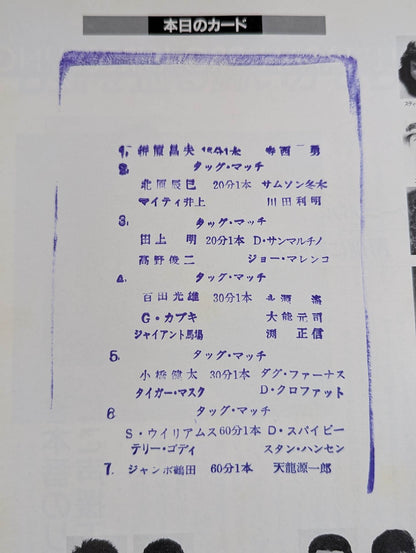 本日のカード
1. 榊原昌夫 15分1本 寺西 勇
2. タッグ・マッチ
北原辰巳 20分1本 サムソン冬木
マイティ井上 川田利明
3. タッグ・マッチ
田上 明 20分1本 D・サンマルチノ
高野俊二 ジョー・マレンコ
4. タッグ・マッチ
百田光雄 30分1本 永源 遙
G・カブキ 大熊元司
ジャイアント馬場 渕 正信
5. タッグ・マッチ
小橋健太 30分1本 ダグ・ファーナス
タイガー・マスク D・クロファット
6 タッグ・マッチ
S・ウイリアムス 60分1本 D・スパイビー
テリー・ゴディ スタン・ハンセン
7. ジャンボ鶴田 60分1本 天龍源一郎